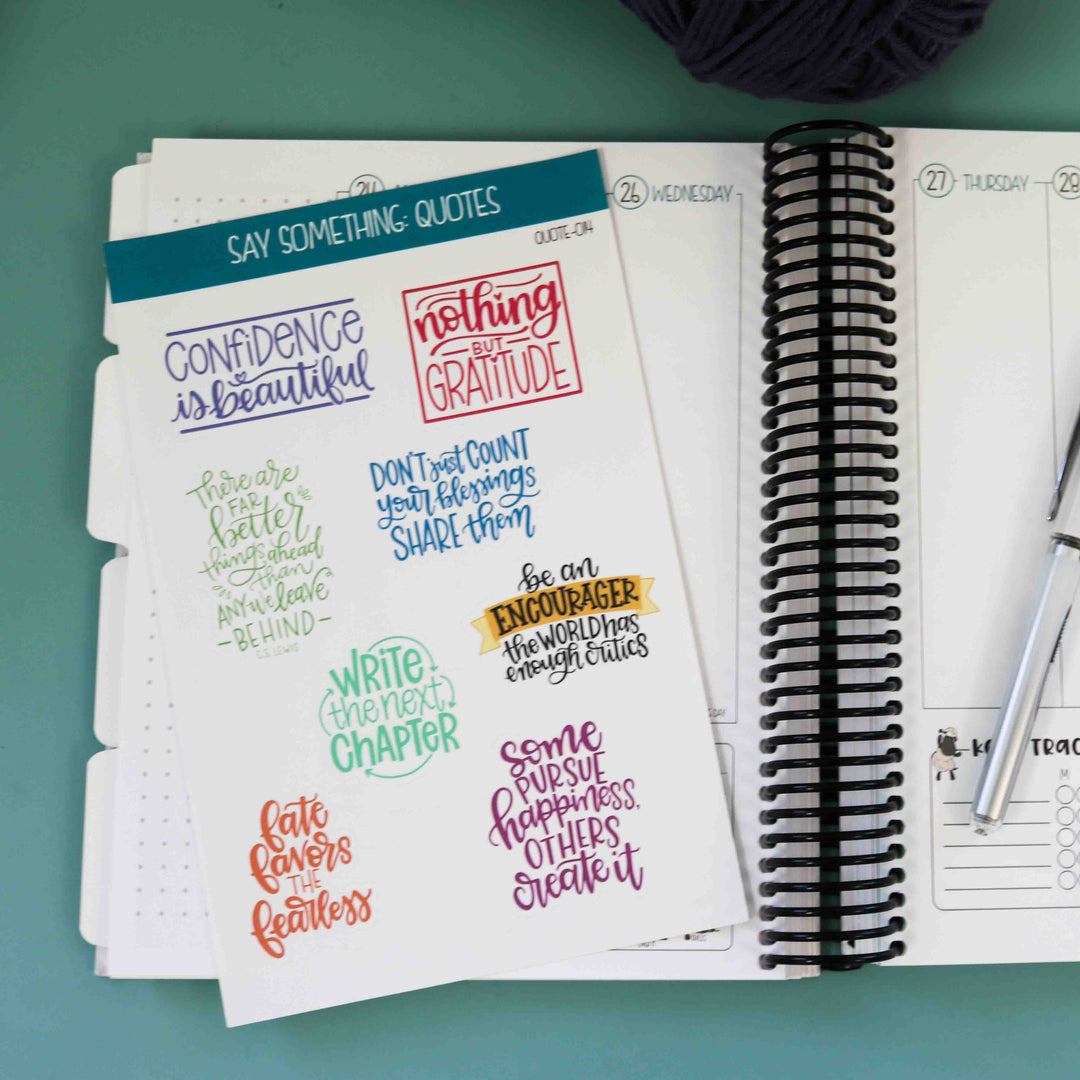 SAY SOMETHING: QUOTES
QUOTE-014
CONFIDENCE
is beautiful
nothing
BUT
GRATITUDE
There are
FAR
better
things ahead
than
ANY we leave
BEHIND
C.S. LEWIS
DON'T just COUNT
your blessings
SHARE them
be an
ENCOURAGER
the WORLD has
enough critics
WRITE
the next
CHAPTER
some
PURSUE
happiness,
OTHERS
create it
fate
favors
THE
fearless
24
26 WEDNESDAY
27 THURSDAY
28
TRAC
M